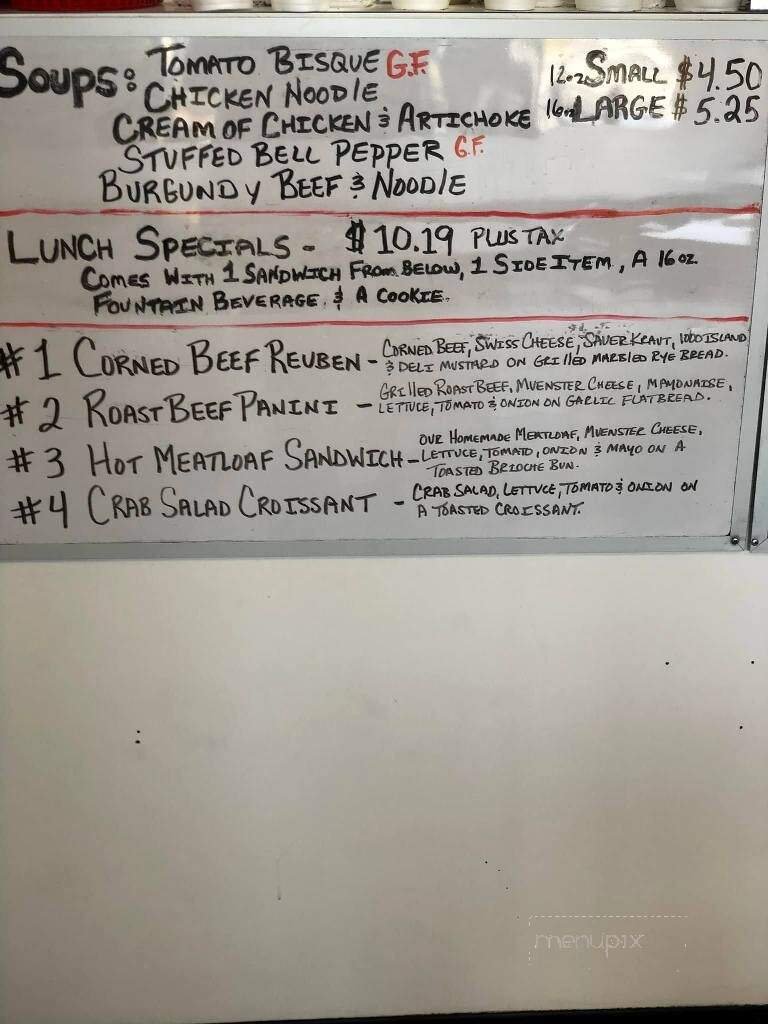 Soups: Tomato Bisque G.F.
12oz Small $4.50
Chicken Noodle
16oz Large $5.25
Cream of Chicken & Artichoke
Stuffed Bell Pepper G.F.
Burgundy Beef & Noodle
Lunch Specials - $10.19 Plus Tax
Comes With 1 Sandwich From Below, 1 Side Item, A 16oz.
Fountain Beverage. & A Cookie.
#1 Corned Beef Reuben - Corned Beef, Swiss Cheese, Sauerkraut, 1000 Island
& Deli Mustard on Grilled Marbled Rye Bread.
#2 Roast Beef Panini - Grilled Roast Beef, Muenster Cheese, Mayonaise,
Lettuce, Tomato & Onion on Garlic Flatbread.
#3 Hot Meatloaf Sandwich - Our Homemade Meatloaf, Muenster Cheese,
Lettuce, Tomato, Onion & Mayo on a
Toasted Brioche Bun.
#4 Crab Salad Croissant - Crab Salad, Lettuce, Tomato & Onion on
a Toasted Croissant.
menupix